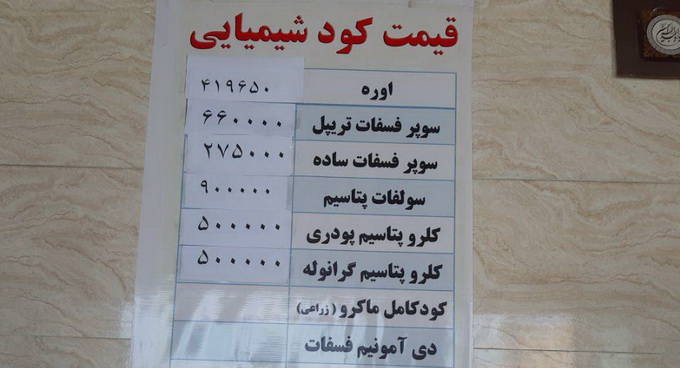 قیمت کود شیمیایی
اوره ۴۱۹۶۵۰
سوپر فسفات تریپل ۶۶۰۰۰۰
سوپر فسفات ساده ۲۷۵۰۰۰
سولفات پتاسیم ۹۰۰۰۰۰
کلرو پتاسیم پودری ۵۰۰۰۰۰
کلرو پتاسیم گرانوله ۵۰۰۰۰۰
کودکامل ماکرو (زراعی)
دی آمونیم فسفات